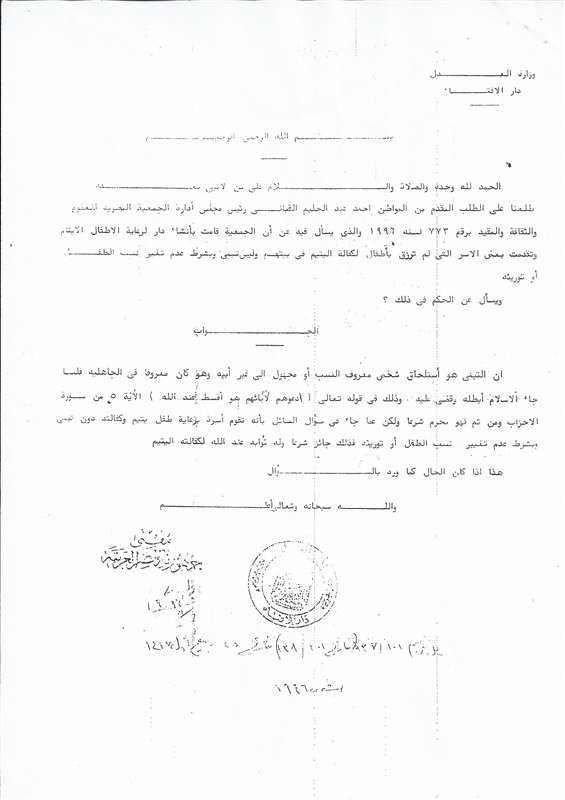 وزارة العـــــدل
دار الافتـــاء
بســـم الله الرحمن الرحيـــم
الحمد لله وحده والصلاة والـــــلام على من لانبى بعـــده
طلعنا على الطلب المقدم من المواطن احمد عبد الحليم القبانـــى رئيس مجلس أدارة الجمعية المصرية للعلوم
والثقافة والمقيد برقم ٧٧٣ لسنه ١٩٩٦ والذى يسأل فيه عن أن الجمعية قامت بأنشاء دار لرعاية الاطفال الايتام
وتقدمت بعض الاسر التى لم ترزق بأطفال لكفالة اليتيم فى بيتهم وليس تبنى وبشرط عدم تغير نسب الطفـــل
أو توريثه
ويسأل عن الحكم فى ذلك ؟
الجـــواب
ان التبنى هو أستلحاق شخص معروف النسب أو مجهول الى غير أبيه وهو كان معروفا فى الجاهليه فلما
جاء الاسلام أبطله وقضى عليه . وذلك فى قوله تعالى ( أدعوهم لآبائهم هو أقسط عند الله. ) الآية ٥ من سورة
الاحزاب ومن ثم فهو محرم شرعا ولكن عما جاء فى سؤال السائل بأنه تقوم أسرة برعاية طفل يتيم وكفالته دون تبنى
وبشرط عدم تغيير نسب الطفل أو توريثه فذلك جائز شرعا وله ثوابه عند الله لكفالته اليتيم
هذا اذا كان الحال كما ورد بالســـؤال
واللـــه سبحانه وتعالى أعلـــم
مفتى
جمهورية مصر العربية
دار الافتاء